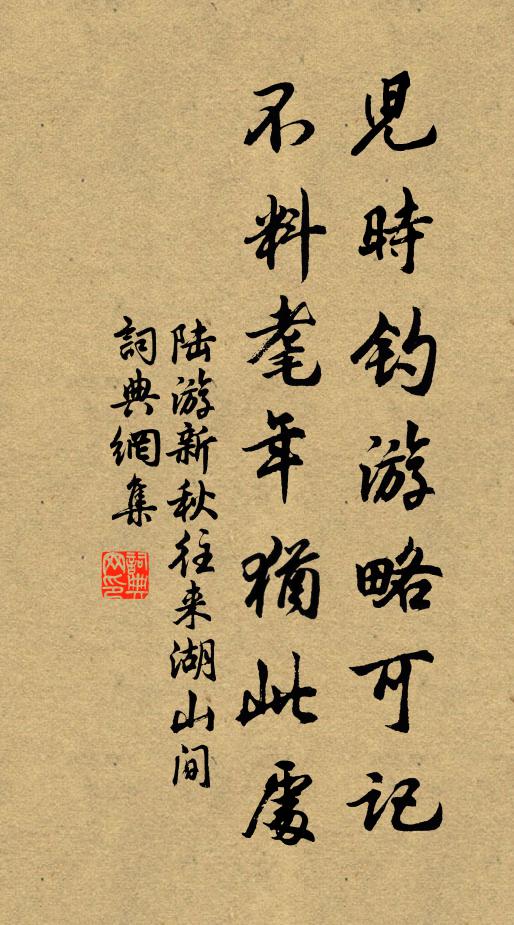 児時釣游略可記
不料耄年猶此處
陆游新秋往来湖山间
詞典網集
詞典网印